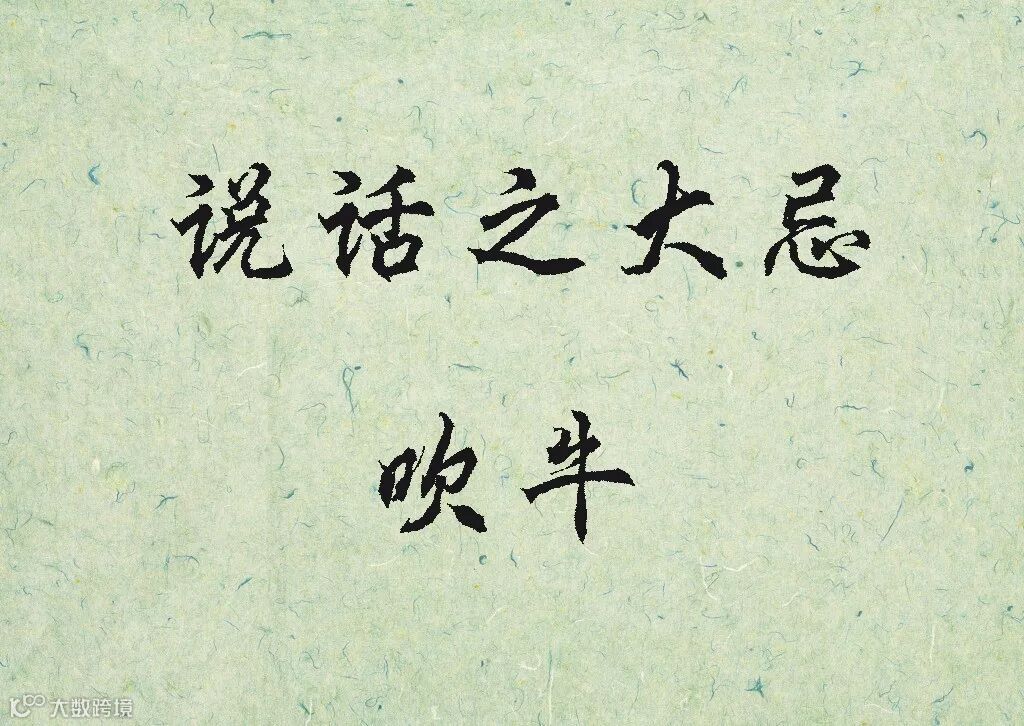 说话之大忌
吹牛
大数跨境